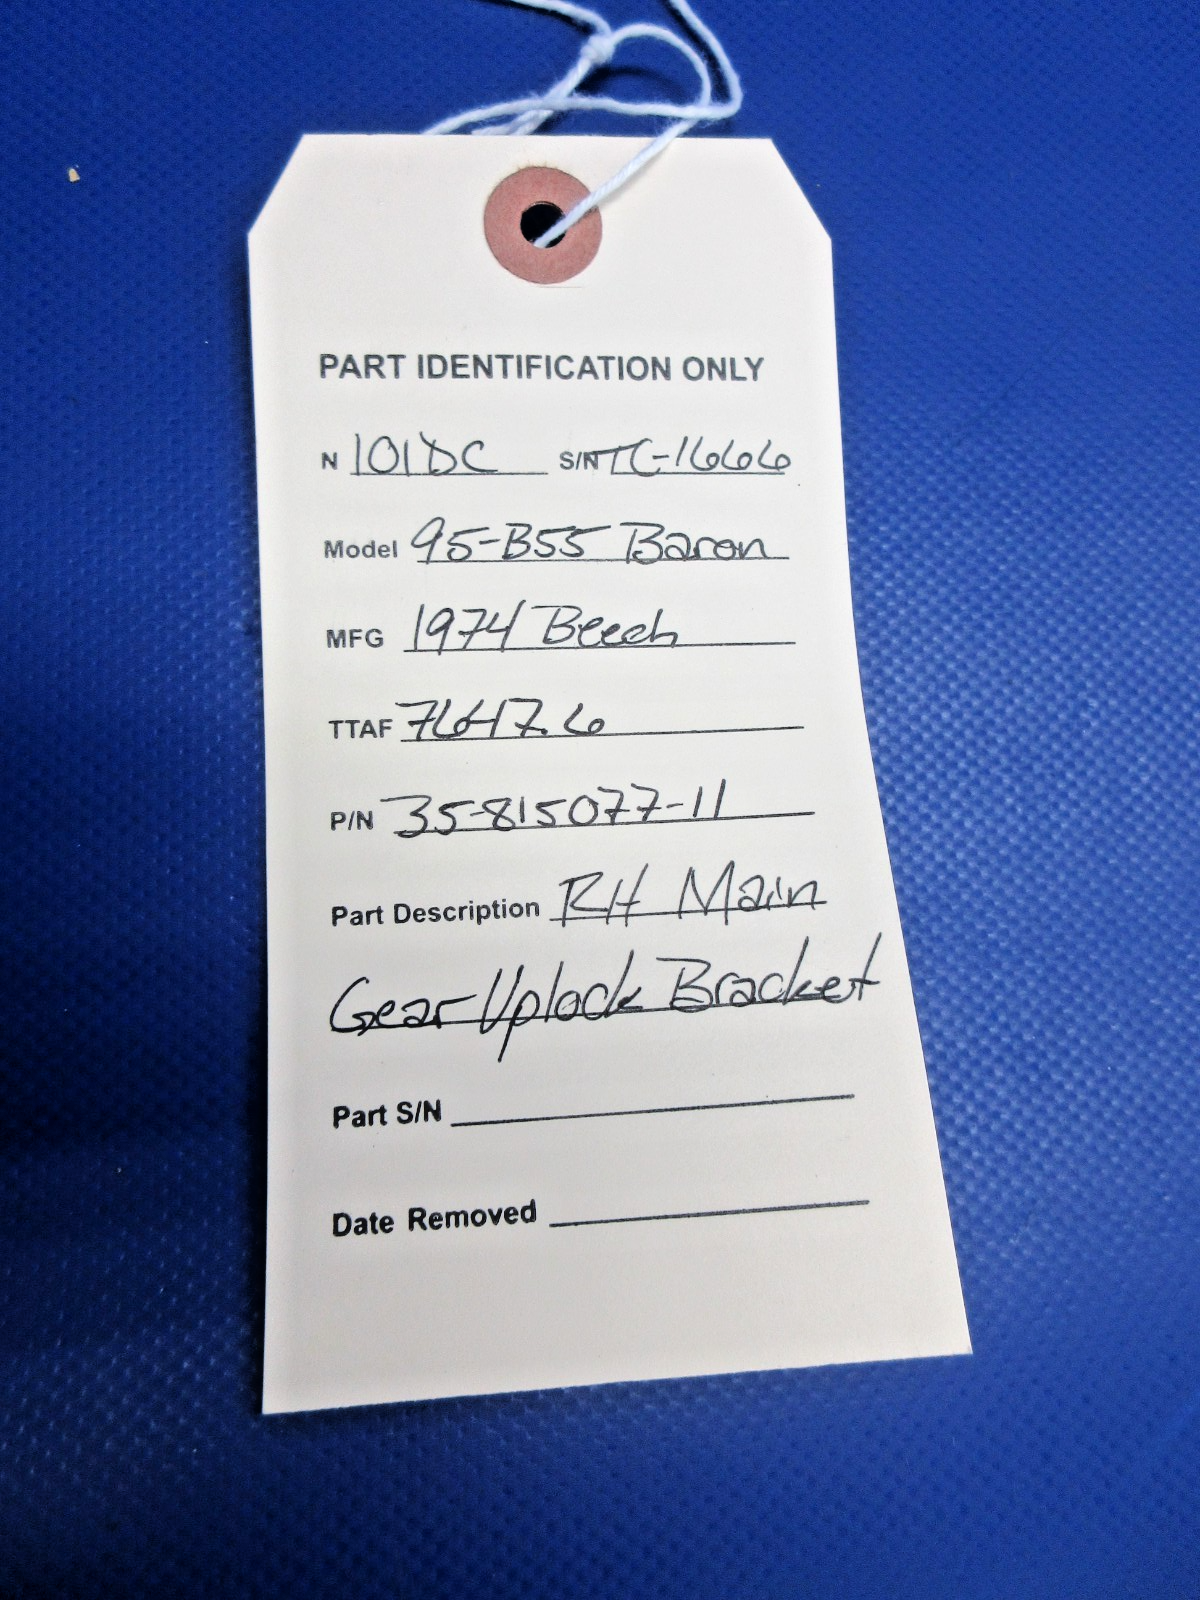 PART IDENTIFICATION ONLY
N 101DC S/N TC-1666
Model 95-B55 Baron
MFG 1974 Beech
TTAF 7647.6
P/N 35-815077-11
Part Description RH Main
Gear Uplock Bracket
Part S/N
Date Removed